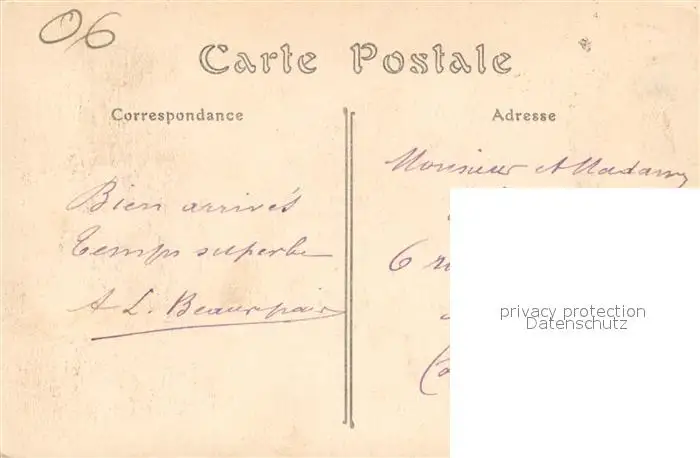 06
Carte Postale
Correspondance
Adresse
Bien arrivés
Temps superbe
A L. Beaurepaire
Monsieur et Madame
6 ru
privacy protection
Datenschutz